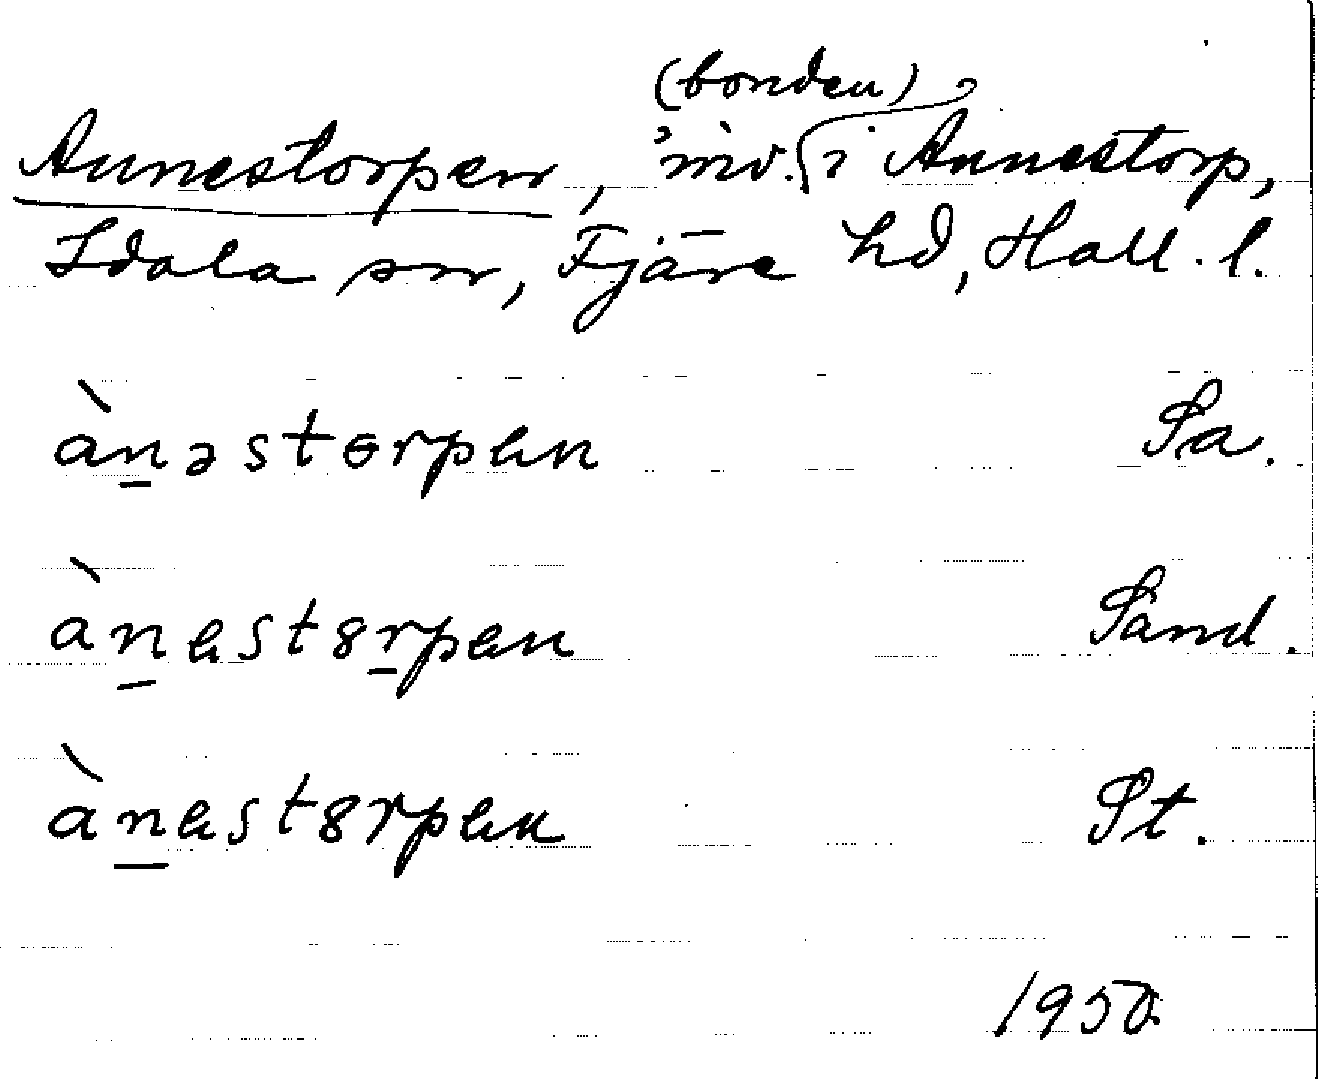 (bonden)
Annestorpen, 'inv. i Annestorp,
Idala sn, Fjäre hd, Hall. l.
ànəstɵrpen Sa.
ànestȣrpen Sand.
ànestȣrpen St.
1950